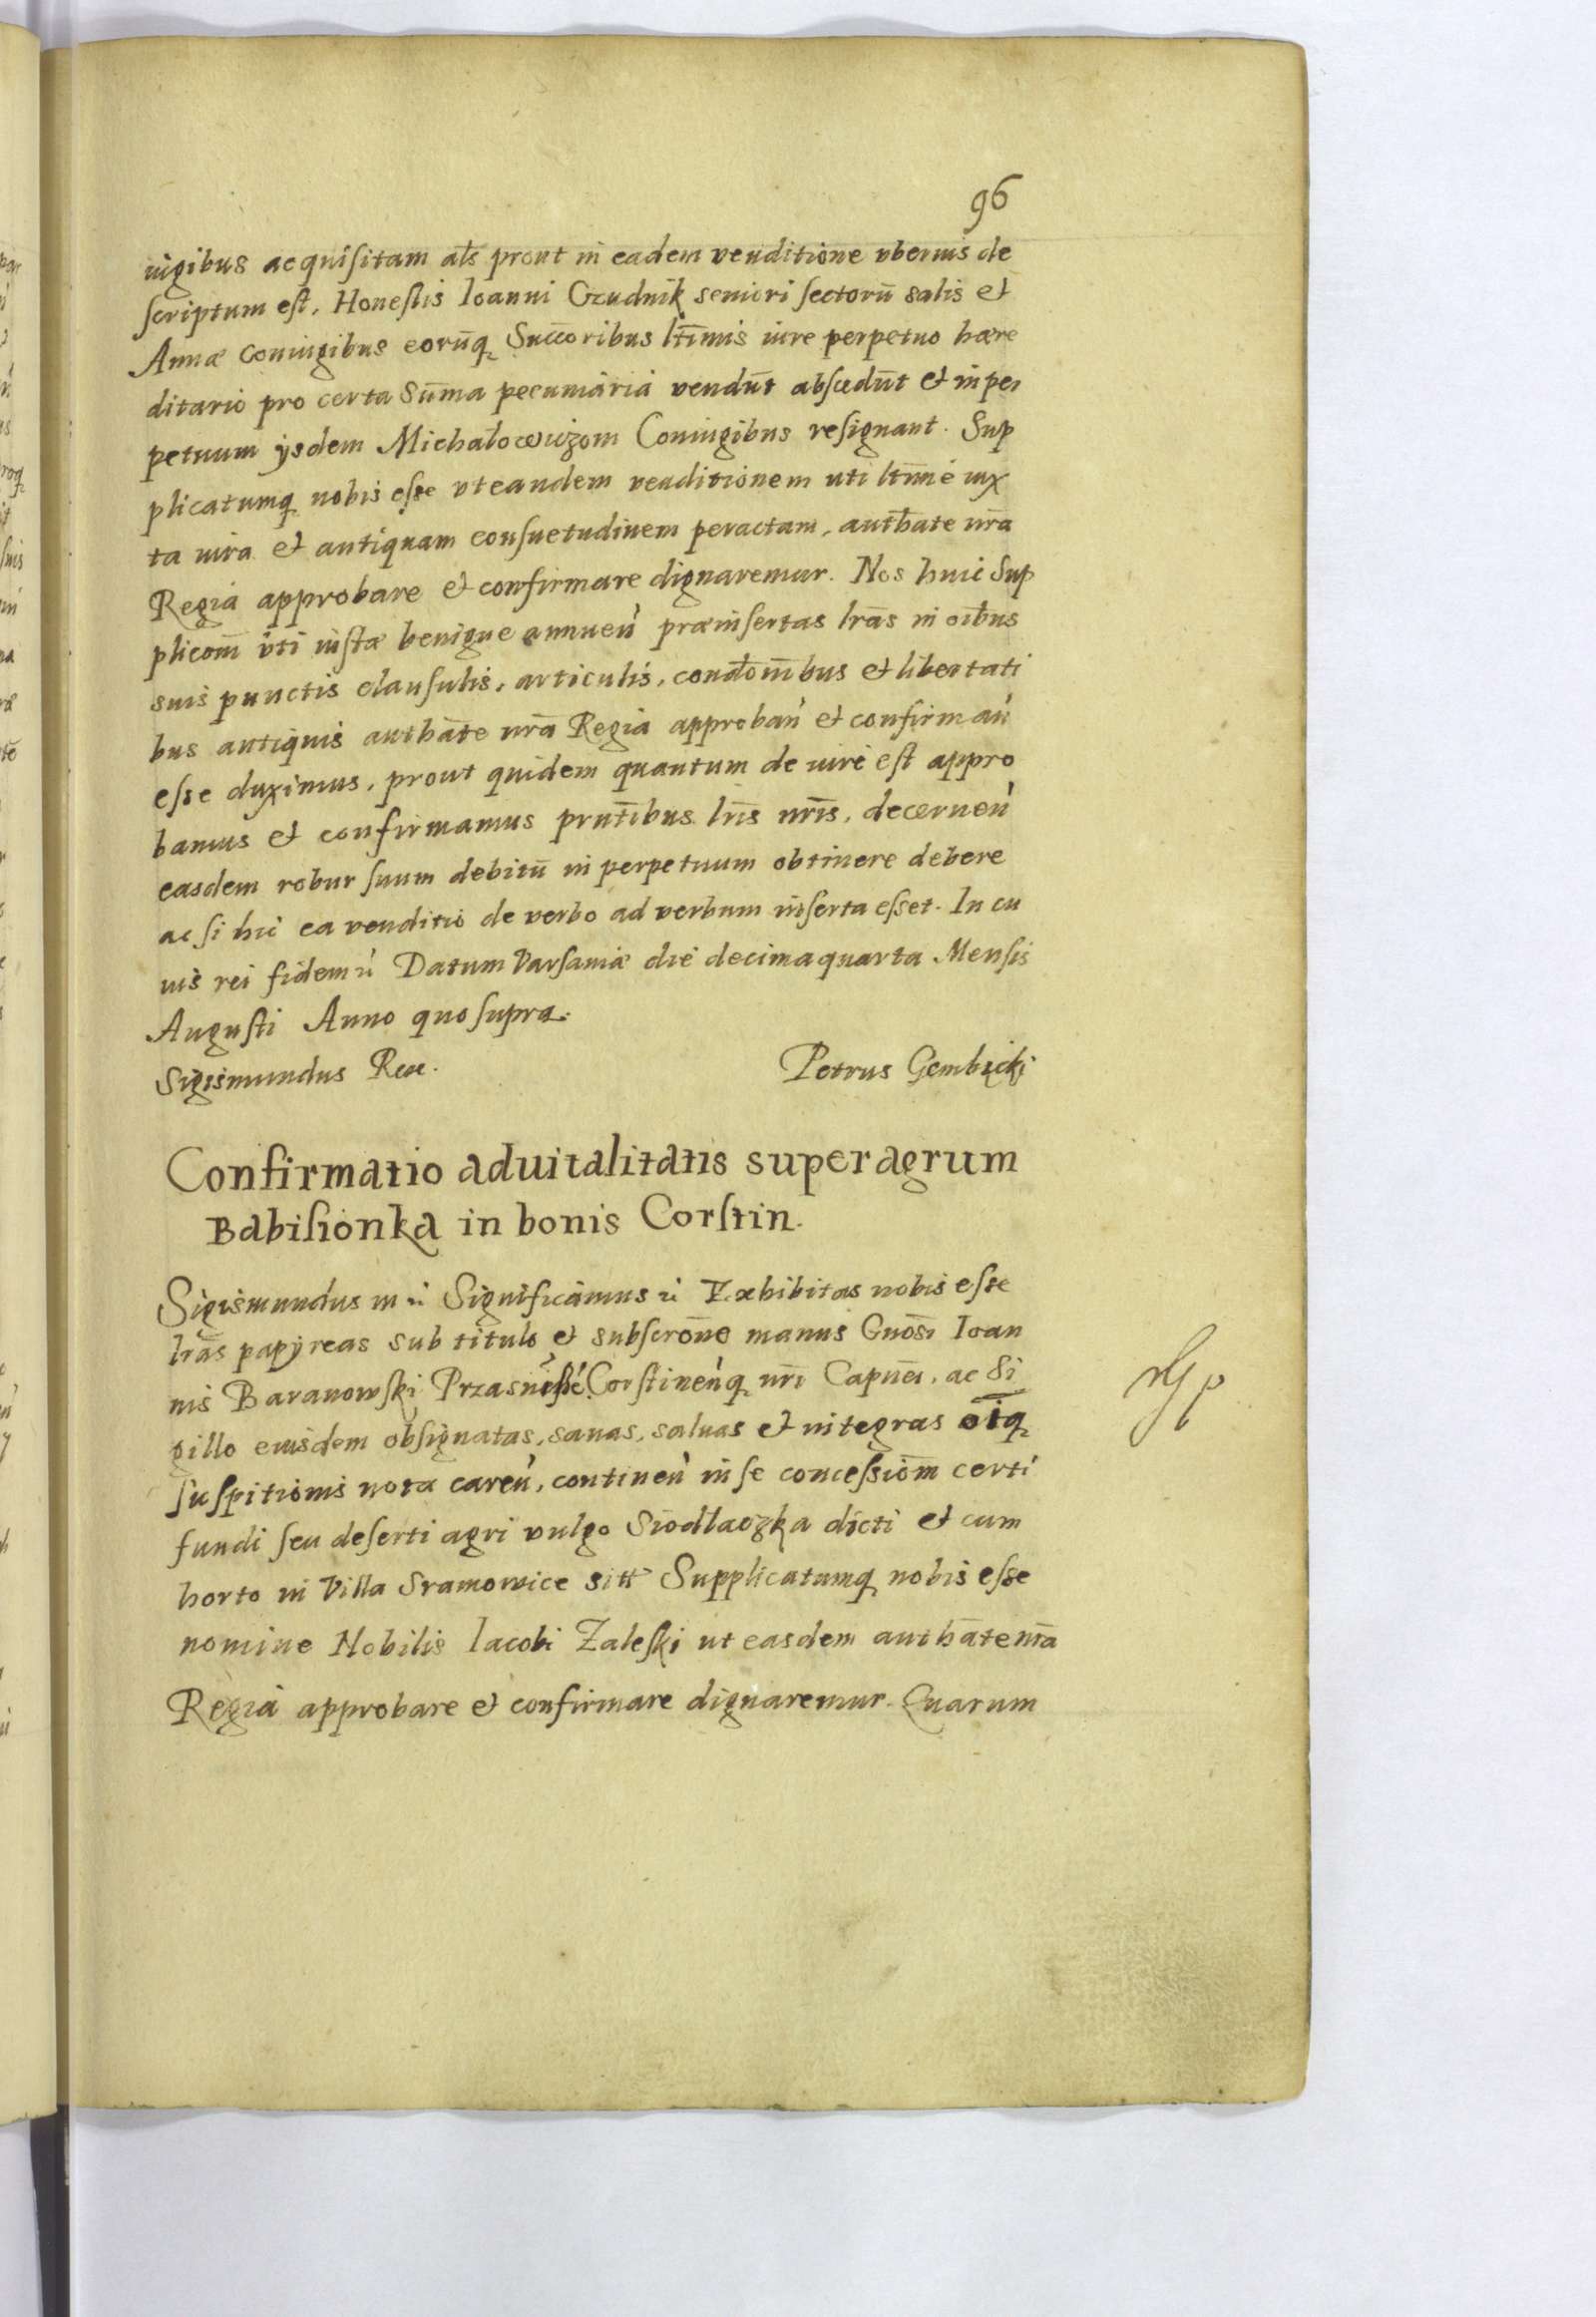 96
iugibus acquisitam als prout in eadem venditione uberius de
scriptum est, Honestis Ioanni Grudnik seniori sectorū salis et
Annæ Coniugibus eorūq Succoribus ltīmis iure perpetuo hære
ditario pro certa Sūma pecuniaria vendūt abscedūt et in per
petuum ijsdem Michałowizom Coniugibus resignant. Sup
plicatumq nobis esse ut eandem venditionem uti ltīme iux
ta iura et antiquam consuetudinem peractam, authāte nrā
Regia approbare et confirmare dignaremur. Nos huic Sup
plicōni uti iustæ benigne annueǹ præinsertas lrās in oībus
suis punctis clausulis, articulis, condōnibus et libertati
bus antiquis authāte nrā Regia approbaǹ et confirmaǹ
esse duximus, prout quidem quantum de iure est appro
bamus et confirmamus prntībus lrīs nrīs, decerneǹ
easdem robur suum debitū in perpetuum obtinere debere
ac si hic ea venditio de verbo ad verbum inserta esset. In cu
ius rei fidem ù Datum Varsaviæ die decima quarta Mensis
Augusti Anno quo supra.
Sigismundus Rex.
Petrus Gembicki
Confirmatio aduitalitatis super agrum
Babisionka in bonis Corstin.
Sigismundus m ù Significamus ù Exhibitas nobis esse
lrās papyreas sub titulo et subscrōne manus Gnōsi Ioan
nis Baranowski Corstineǹq nrī Capnēi, ac Si
gillo eiusdem obsignatas, sanas, saluas et integras oīq
suspitionis nota careǹ, contineǹ in se concessiōm certi
fundi seu deserti agri vulgo Siodłaczka dicti et cum
horto in Villa Sramowice sitt Supplicatumq nobis esse
nomine Nobilis Iacobi Zaleski ut easdem authāte nrā
Regia approbare et confirmare dignaremur. Quarum